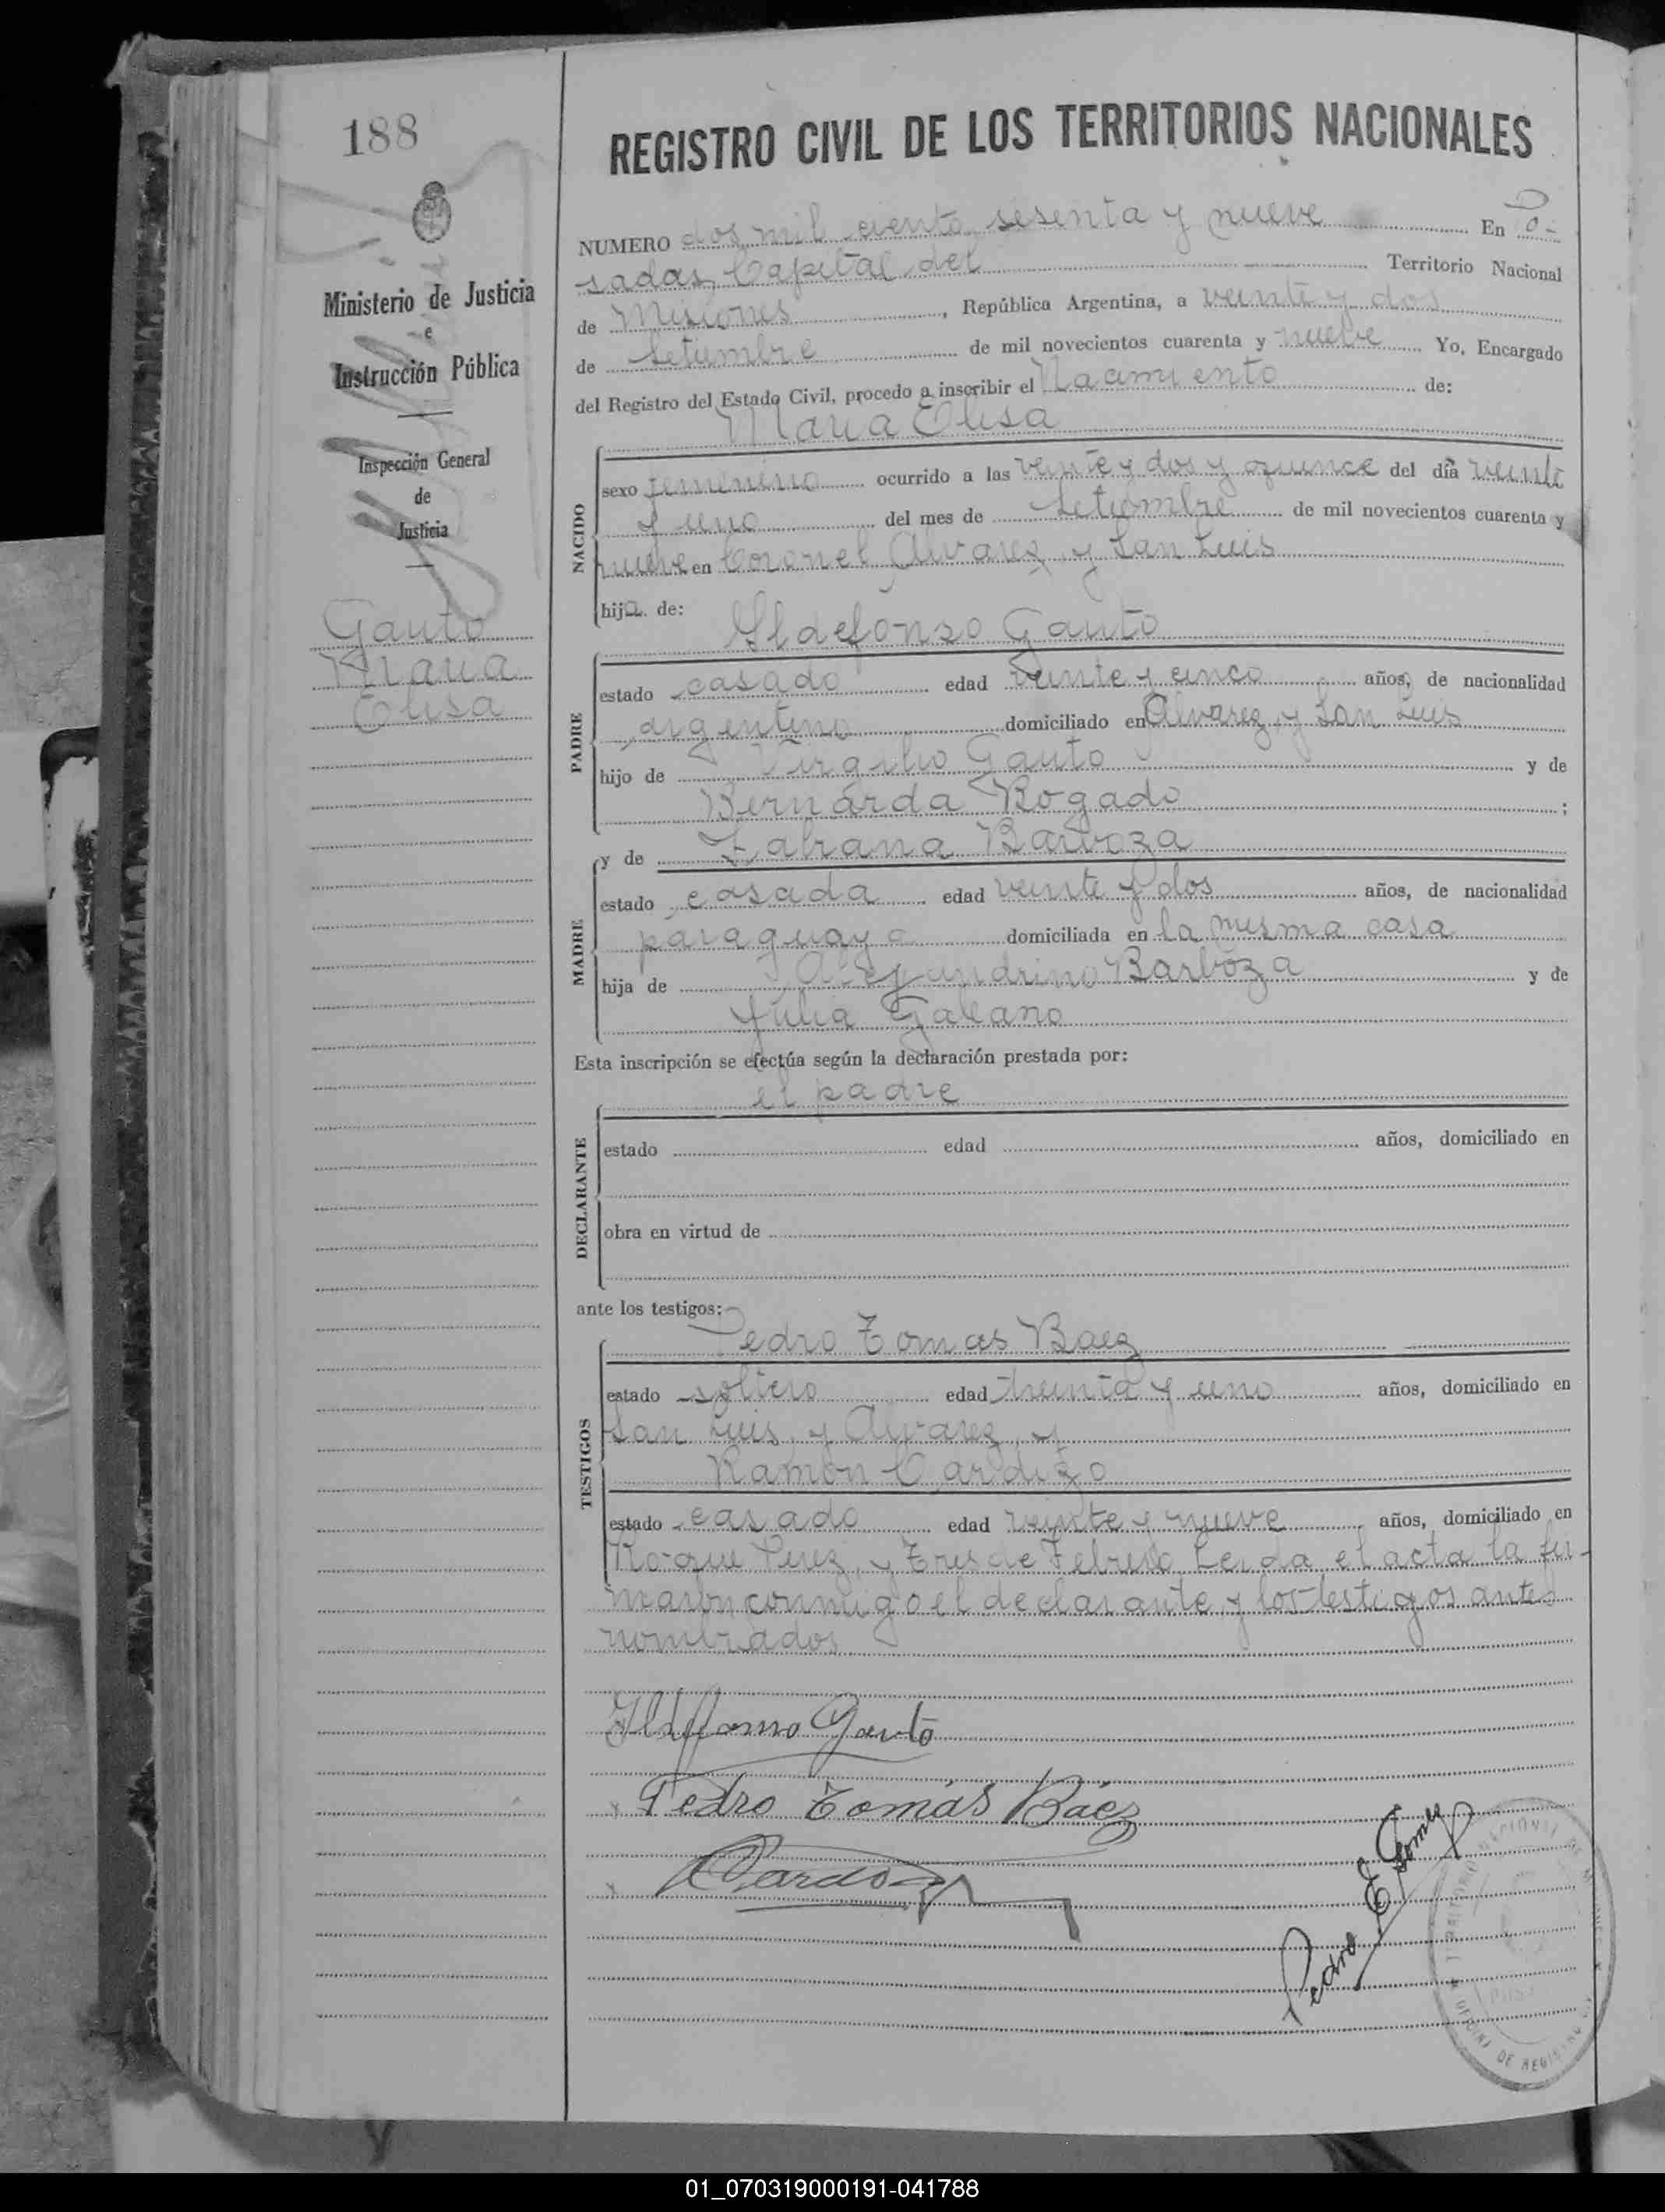 188
Ministerio de Justicia
e
Instrucción Pública
Inspección General
de
Justicia
Gauto
Maria
Elisa
REGISTRO CIVIL DE LOS TERRITORIOS NACIONALES
NUMERO dos mil ciento sesenta y nueve En Po-
sadas, Capital del Territorio Nacional
de Misiones, República Argentina, a veinte y dos
de Setiembre de mil novecientos cuarenta y nueve Yo, Encargado
del Registro del Estado Civil, procedo a inscribir el Nacimiento de:
Maria Elisa
NACIDO
sexo femenino ocurrido a las veinte y dos y quince del día veinte
y uno del mes de Setiembre de mil novecientos cuarenta y
nueve en Coronel Alvarez y San Luis
hija de:
Ildefonso Gauto
PADRE
estado casado edad veinte y cinco años, de nacionalidad
argentino domiciliado en Alvarez y San Luis
hijo de Virgilio Gauto y de
Bernarda Rogado ;
y de Fabiana Barboza
MADRE
estado casada edad veinte y dos años, de nacionalidad
paraguaya domiciliada en la misma casa
hija de Alejandrino Barboza y de
Julia Galeano
Esta inscripción se efectúa según la declaración prestada por:
el padre
DECLARANTE
estado edad años, domiciliado en
obra en virtud de
ante los testigos:
Pedro Tomas Baez
TESTIGOS
estado soltero edad treinta y uno años, domiciliado en
San Luis y Alvarez, y
Ramón Cardozo
estado casado edad veinte y nueve años, domiciliado en
Roque Perez y Tres de Febrero Leida el acta la fir-
maron conmigo el declarante y los testigos antes
nombrados
Ildefonso Gauto
Pedro Tomás Báez
RCardozo
Pedro E Gomez
OFICINA DE REGISTRO
01_070319000191-041788